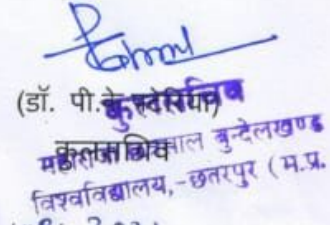 (डॉ. पी.के. पटैरिया)
कुलसचिव
कुलसचिव
महाराजा छत्रसाल बुन्देलखण्ड
विश्वविद्यालय,-छतरपुर (म.प्र.